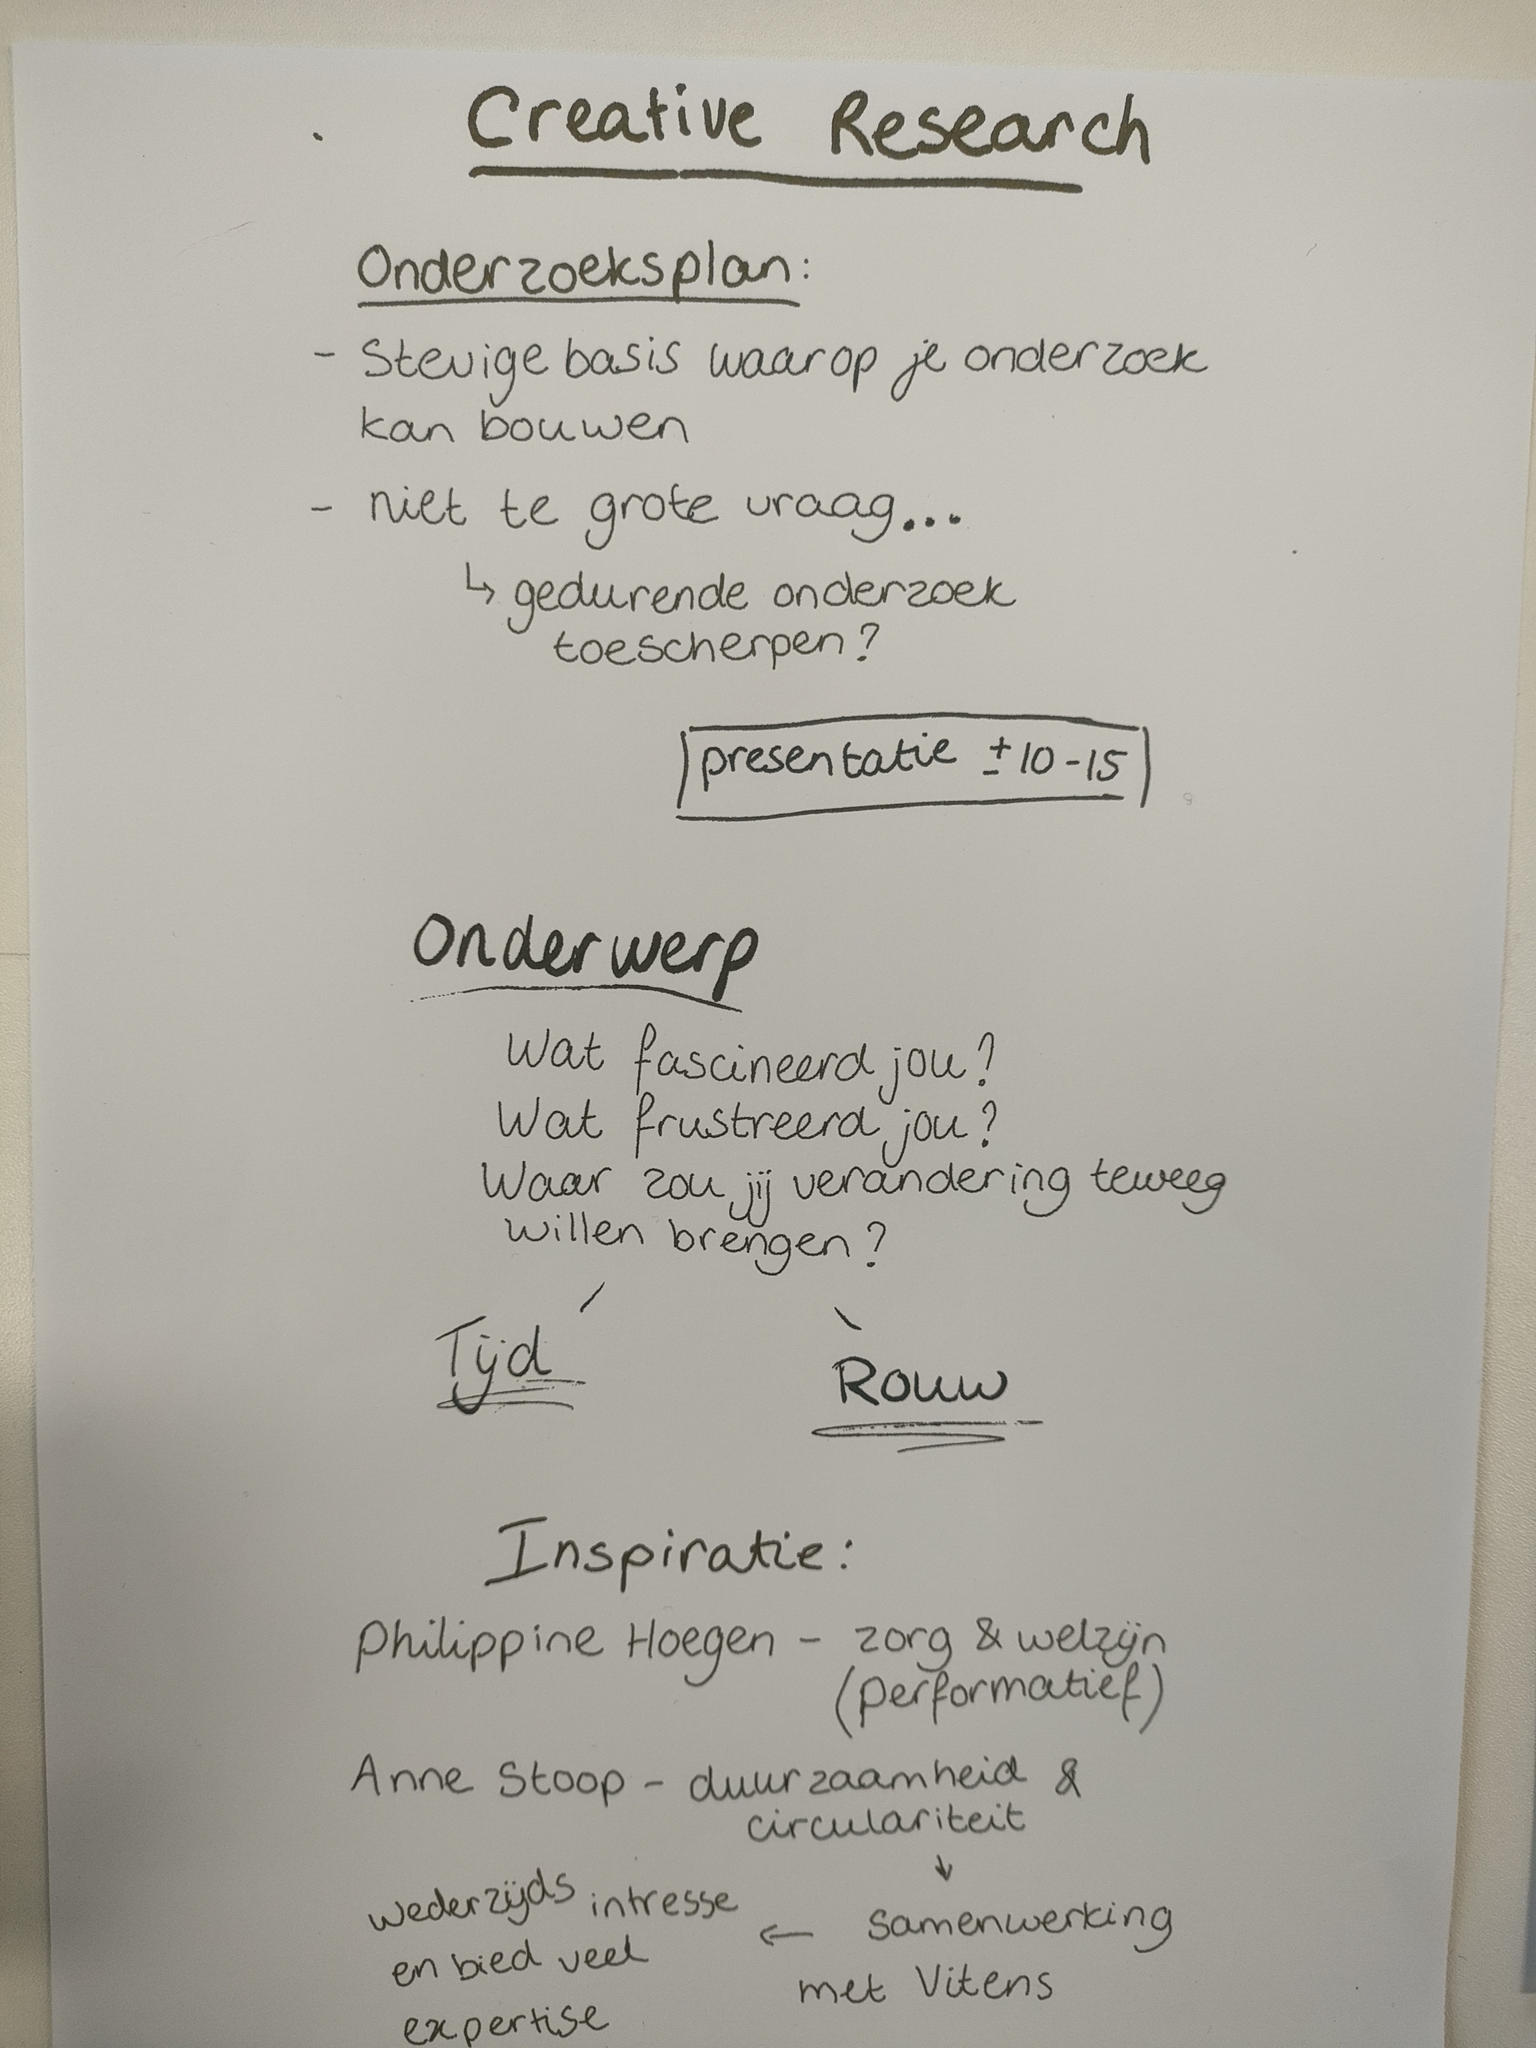 Creative Research
Onderzoeksplan:
- Stevige basis waarop je onderzoek
kan bouwen
- niet te grote vraag...
↳ gedurende onderzoek
toescherpen?
presentatie ± 10-15
Onderwerp
Wat fascineerd jou?
Wat frustreerd jou?
Waar zou jij verandering teweeg
willen brengen?
Tijd
Rouw
Inspiratie:
Philippine Hoegen - zorg & welzijn
(performatief)
Anne Stoop - duurzaamheid &
circulariteit
↓
← samenwerking
met Vitens
wederzijds intresse
en bied veel
expertise